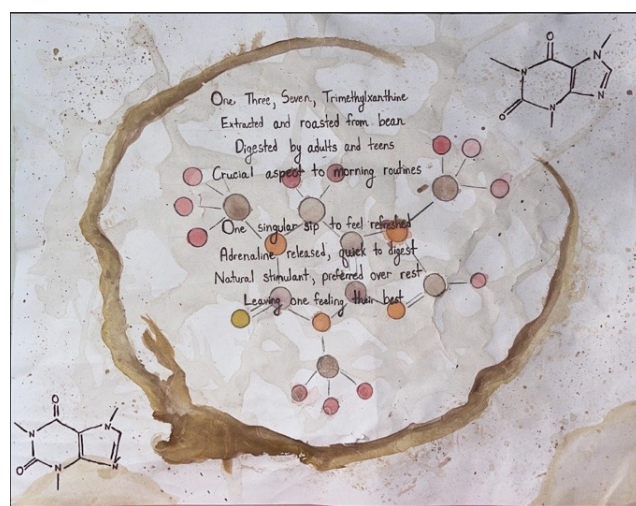 One, Three, Seven, Trimethylxanthine
Extracted and roasted from bean
Digested by adults and teens
Crucial aspect to morning routines
One singular sip to feel refreshed
Adrenaline released, quick to digest
Natural stimulant, preferred over rest
Leaving one feeling their best
O
N
N
O
N
N
O
N
N
O
N
N